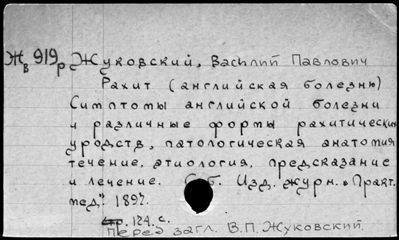 Жв 919р Жуковский, Василий Павлович
Рахит (английская болезнь)
Симптомы английской болезни
и различные формы рахитических
уродств, патологическая анатомия
течение, этиология, предсказание
и лечение. Изд. журн. "Практ.
мед". 1892.
124 с.
Перед загл. В.П. Жуковский.